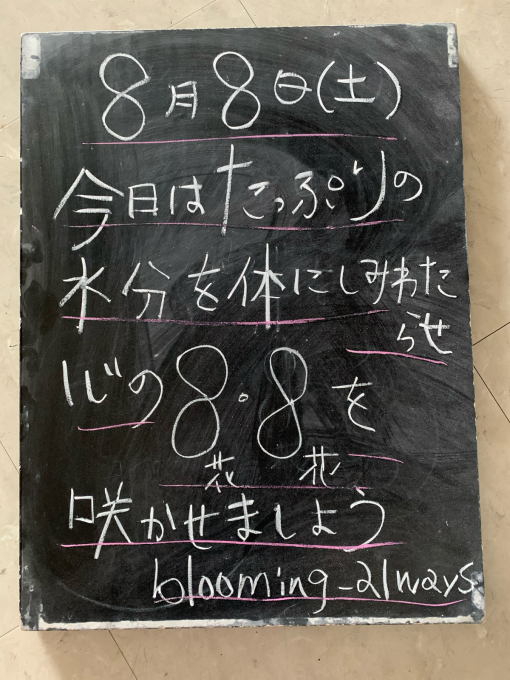 8月8日(土)
今日はたっぷりの
水分を体にしみわた
らせ
心の8。8を
花 花
咲かせましょう
blooming_always